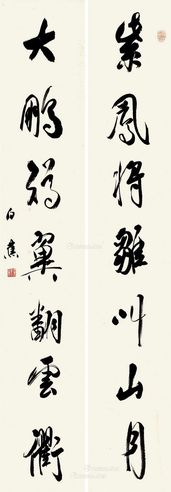 紫鳳將雛叫山月
大鵬弱翼翻雲衢
白蕉